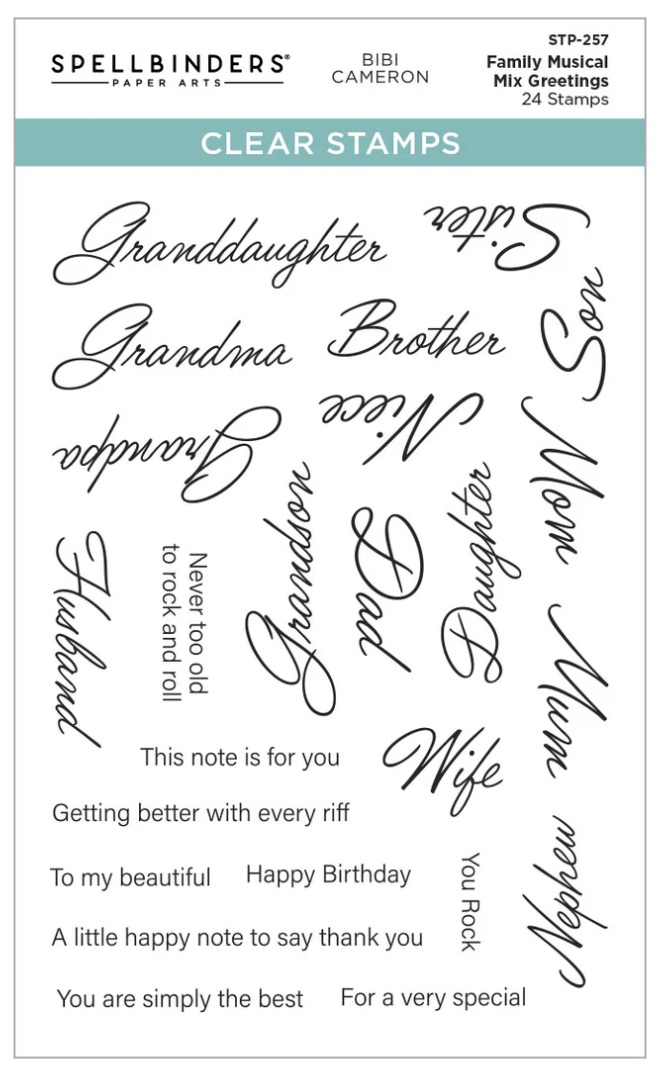 SPELLBINDERS®
PAPER ARTS
BIBI
CAMERON
STP-257
Family Musical
Mix Greetings
24 Stamps
CLEAR STAMPS
Granddaughter
Sister
Son
Grandma
Brother
Grandpa
Niece
Mom
Grandson
Dad
Daughter
Husband
Never too old
to rock and roll
Mum
This note is for you
Wife
Getting better with every riff
To my beautiful
Happy Birthday
You Rock
Nephew
A little happy note to say thank you
You are simply the best
For a very special